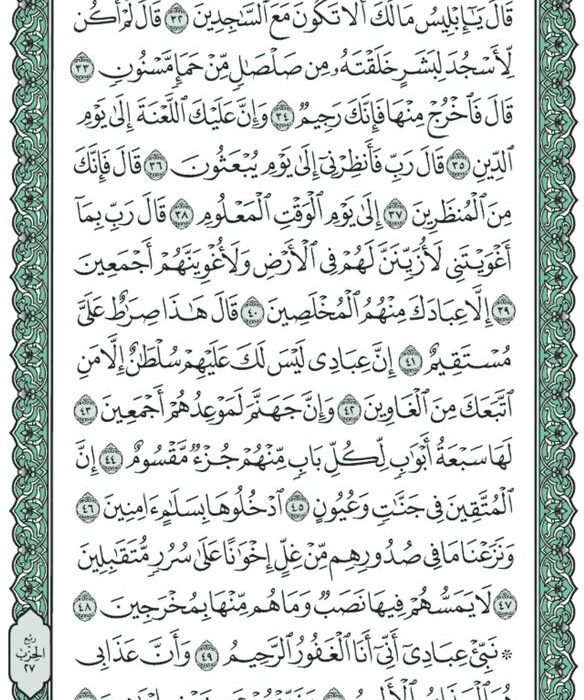 قَالَ يَـٰٓإِبْلِيسُ مَا لَكَ أَلَّا تَكُونَ مَعَ ٱلسَّـٰجِدِينَ ٣٢ قَالَ لَمْ أَكُن
لِّأَسْجُدَ لِبَشَرٍ خَلَقْتَهُۥ مِن صَلْصَـٰلٍ مِّنْ حَمَإٍ مَّسْنُونٍ ٣٣
قَالَ فَٱخْرُجْ مِنْهَا فَإِنَّكَ رَجِيمٌ ٣٤ وَإِنَّ عَلَيْكَ ٱللَّعْنَةَ إِلَىٰ يَوْمِ
ٱلدِّينِ ٣٥ قَالَ رَبِّ فَأَنظِرْنِىٓ إِلَىٰ يَوْمِ يُبْعَثُونَ ٣٦ قَالَ فَإِنَّكَ
مِنَ ٱلْمُنظَرِينَ ٣٧ إِلَىٰ يَوْمِ ٱلْوَقْتِ ٱلْمَعْلُومِ ٣٨ قَالَ رَبِّ بِمَآ
أَغْوَيْتَنِى لَأُزَيِّنَنَّ لَهُمْ فِى ٱلْأَرْضِ وَلَأُغْوِيَنَّهُمْ أَجْمَعِينَ
٣٩ إِلَّا عِبَادَكَ مِنْهُمُ ٱلْمُخْلَصِينَ ٤٠ قَالَ هَـٰذَا صِرَٰطٌ عَلَىَّ
مُسْتَقِيمٌ ٤١ إِنَّ عِبَادِى لَيْسَ لَكَ عَلَيْهِمْ سُلْطَـٰنٌ إِلَّا مَنِ
ٱتَّبَعَكَ مِنَ ٱلْغَاوِينَ ٤٢ وَإِنَّ جَهَنَّمَ لَمَوْعِدُهُمْ أَجْمَعِينَ ٤٣
لَهَا سَبْعَةُ أَبْوَٰبٍ لِّكُلِّ بَابٍ مِّنْهُمْ جُزْءٌ مَّقْسُومٌ ٤٤ إِنَّ
ٱلْمُتَّقِينَ فِى جَنَّـٰتٍ وَعُيُونٍ ٤٥ ٱدْخُلُوهَا بِسَلَـٰمٍ ءَامِنِينَ ٤٦
وَنَزَعْنَا مَا فِى صُدُورِهِم مِّنْ غِلٍّ إِخْوَٰنًا عَلَىٰ سُرُرٍ مُّتَقَـٰبِلِينَ
٤٧ لَا يَمَسُّهُمْ فِيهَا نَصَبٌ وَمَا هُم مِّنْهَا بِمُخْرَجِينَ ٤٨
۞ نَبِّئْ عِبَادِىٓ أَنِّىٓ أَنَا ٱلْغَفُورُ ٱلرَّحِيمُ ٤٩ وَأَنَّ عَذَابِى
ربع
الحزب
٢٧